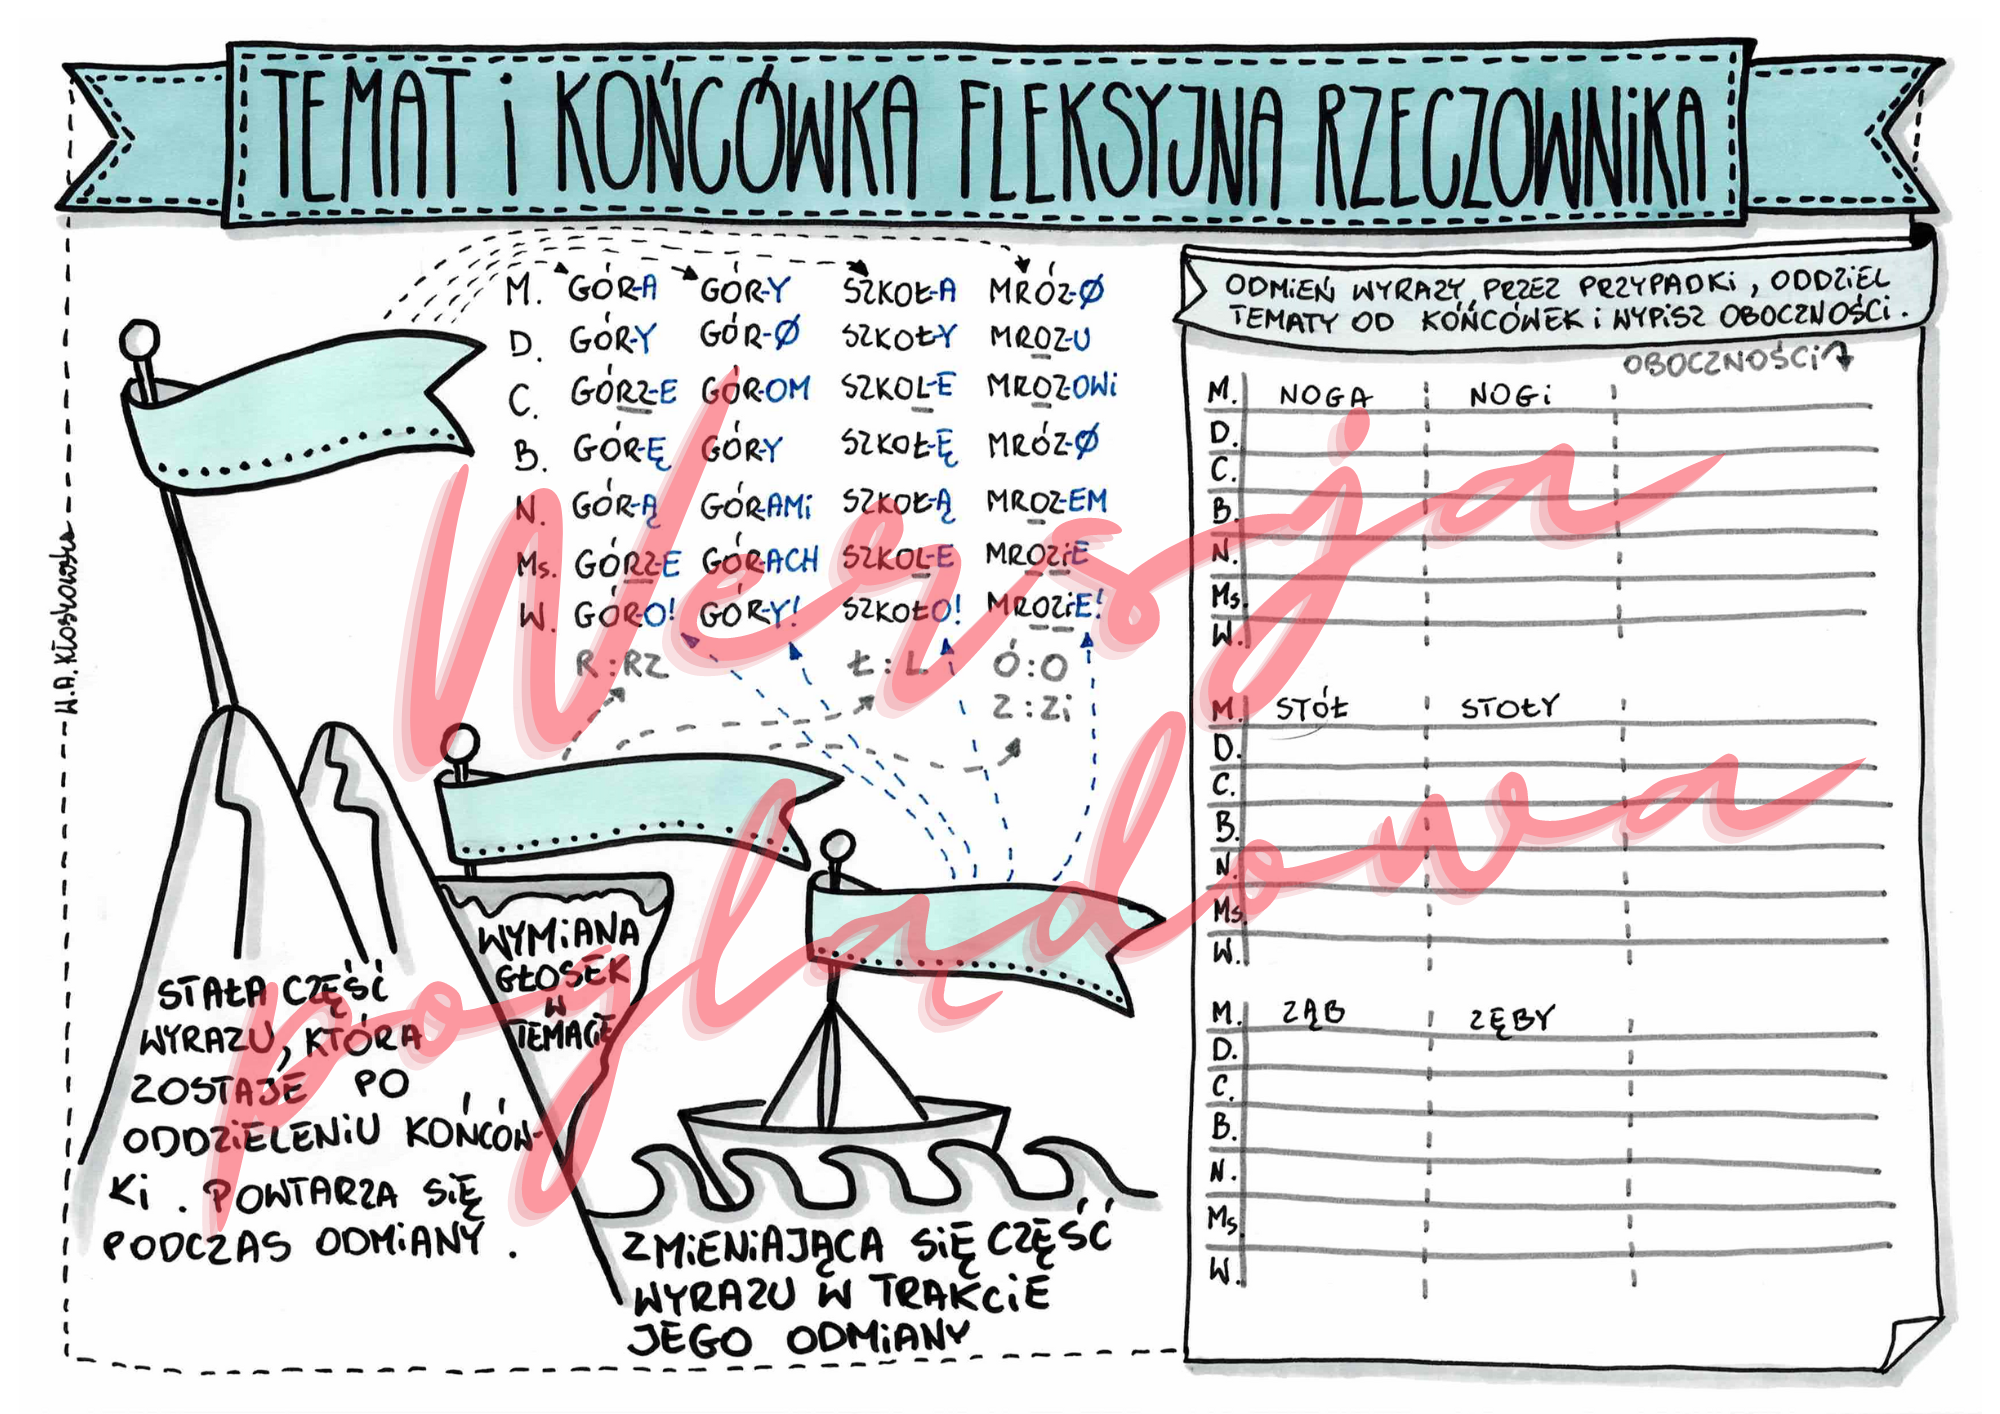 TEMAT i KOŃCÓWKA FLEKSYJNA RZECZOWNiKA
M. GÓR-A GÓR-Y SZKOŁ-A MRÓZ-Ø
D. GÓR-Y GÓR-Ø SZKOŁ-Y MROZ-U
C. GÓRZ-E GÓR-OM SZKOL-E MROZ-OWi
B. GÓR-Ę GÓR-Y SZKOŁ-Ę MRÓZ-Ø
N. GÓR-Ą GÓR-AMi SZKOŁ-Ą MROZ-EM
Ms. GÓRZ-E GÓR-ACH SZKOL-E MROZi-E
W. GÓR-O! GÓR-Y! SZKOŁ-O! MROZi-E!
R:RZ Ł:L Ó:O
Z:Zi
WYMiANA
GŁOSEK
W
TEMACiE
STAŁA CZĘŚĆ
WYRAZU, KTÓRA
ZOSTAJE PO
ODDZiELENiU KOŃCÓW-
Ki. POWTARZA SiĘ
PODCZAS ODMiANY.
ZMiENiAJĄCA SiĘ CZĘŚĆ
WYRAZU W TRAKCiE
JEGO ODMiANY
W.A.Kłoskowska
ODMiEŃ WYRAZY PRZEZ PRZYPADKi, ODDZiEL
TEMATY OD KOŃCÓWEK i WYPiSZ OBOCZNOŚCi.
OBOCZNOŚCi
M. NOGA NOGi
D.
C.
B.
N.
Ms.
W.
M. STÓŁ STOŁY
D.
C.
B.
N.
Ms.
W.
M. ZĄB ZĘBY
D.
C.
B.
N.
Ms.
W.
Wersja
poglądowa